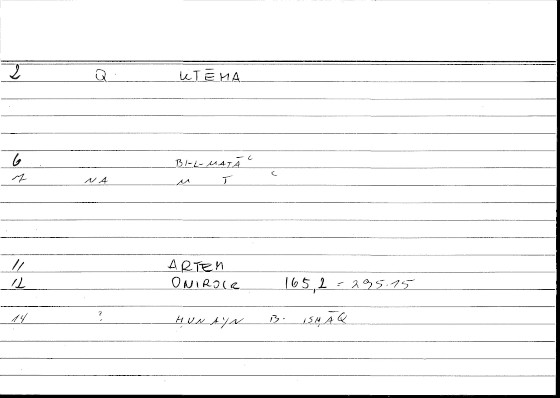 2 Q KTĒMA
6 BI-L-MATĀʿ
7 NA M T ʿ
11 ARTEM
12 ONIROCR 165,2 = 295.15
14 ? ḤUNAYN B. ISḤĀQ